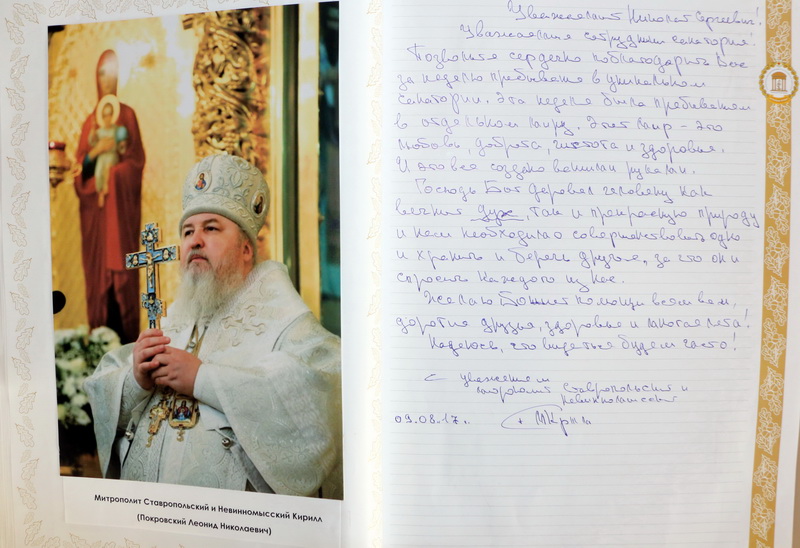 Уважаемый Николай Сергеевич!
Уважаемые сотрудники санатория!
Позвольте сердечно поблагодарить Вас
за неделю пребывания в уникальном
санатории. Эта неделя была пребыванием
в отдельном миру. Этот мир – это
любовь, доброта, чистота и здоровье.
И это все создано вашими руками.
Господь Бог даровал человеку как
вечный дух, так и прекрасную природу
и нам необходимо совершенствовать одно
и хранить и беречь другое, за что они
спросить каждого из нас.
Желаю Божией помощи всем вам,
дорогие друзья, здоровья и многая лета!
Надеюсь, что видеться будем часто!
С уважением
митрополит Ставропольский и
Невинномысский
09.08.17г. + МКирилл
Митрополит Ставропольский и Невинномысский Кирилл
(Покровский Леонид Николаевич)